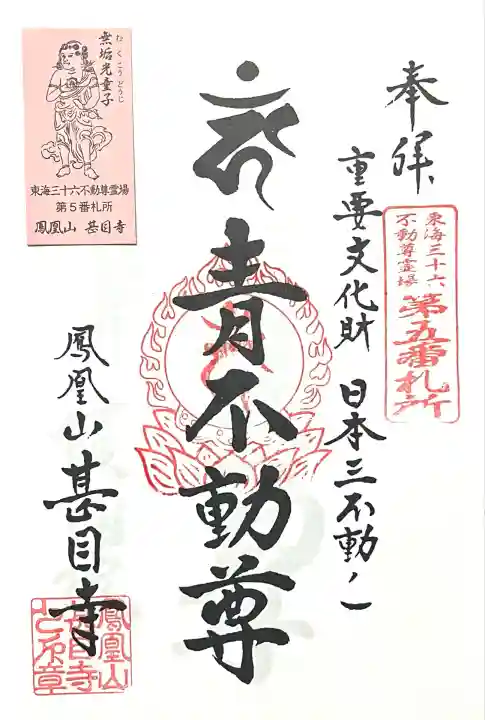 奉拝
東海三十六
不動尊霊場
第五番札所
重要文化財 日本三不動ノ一
青不動尊
鳳凰山 甚目寺
無垢光童子
むくこうどうじ
東海三十六不動尊霊場
第5番札所
鳳凰山 甚目寺
鳳凰山
甚目寺